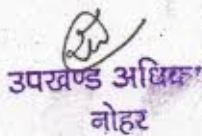 उपखण्ड अधिका
नोहर